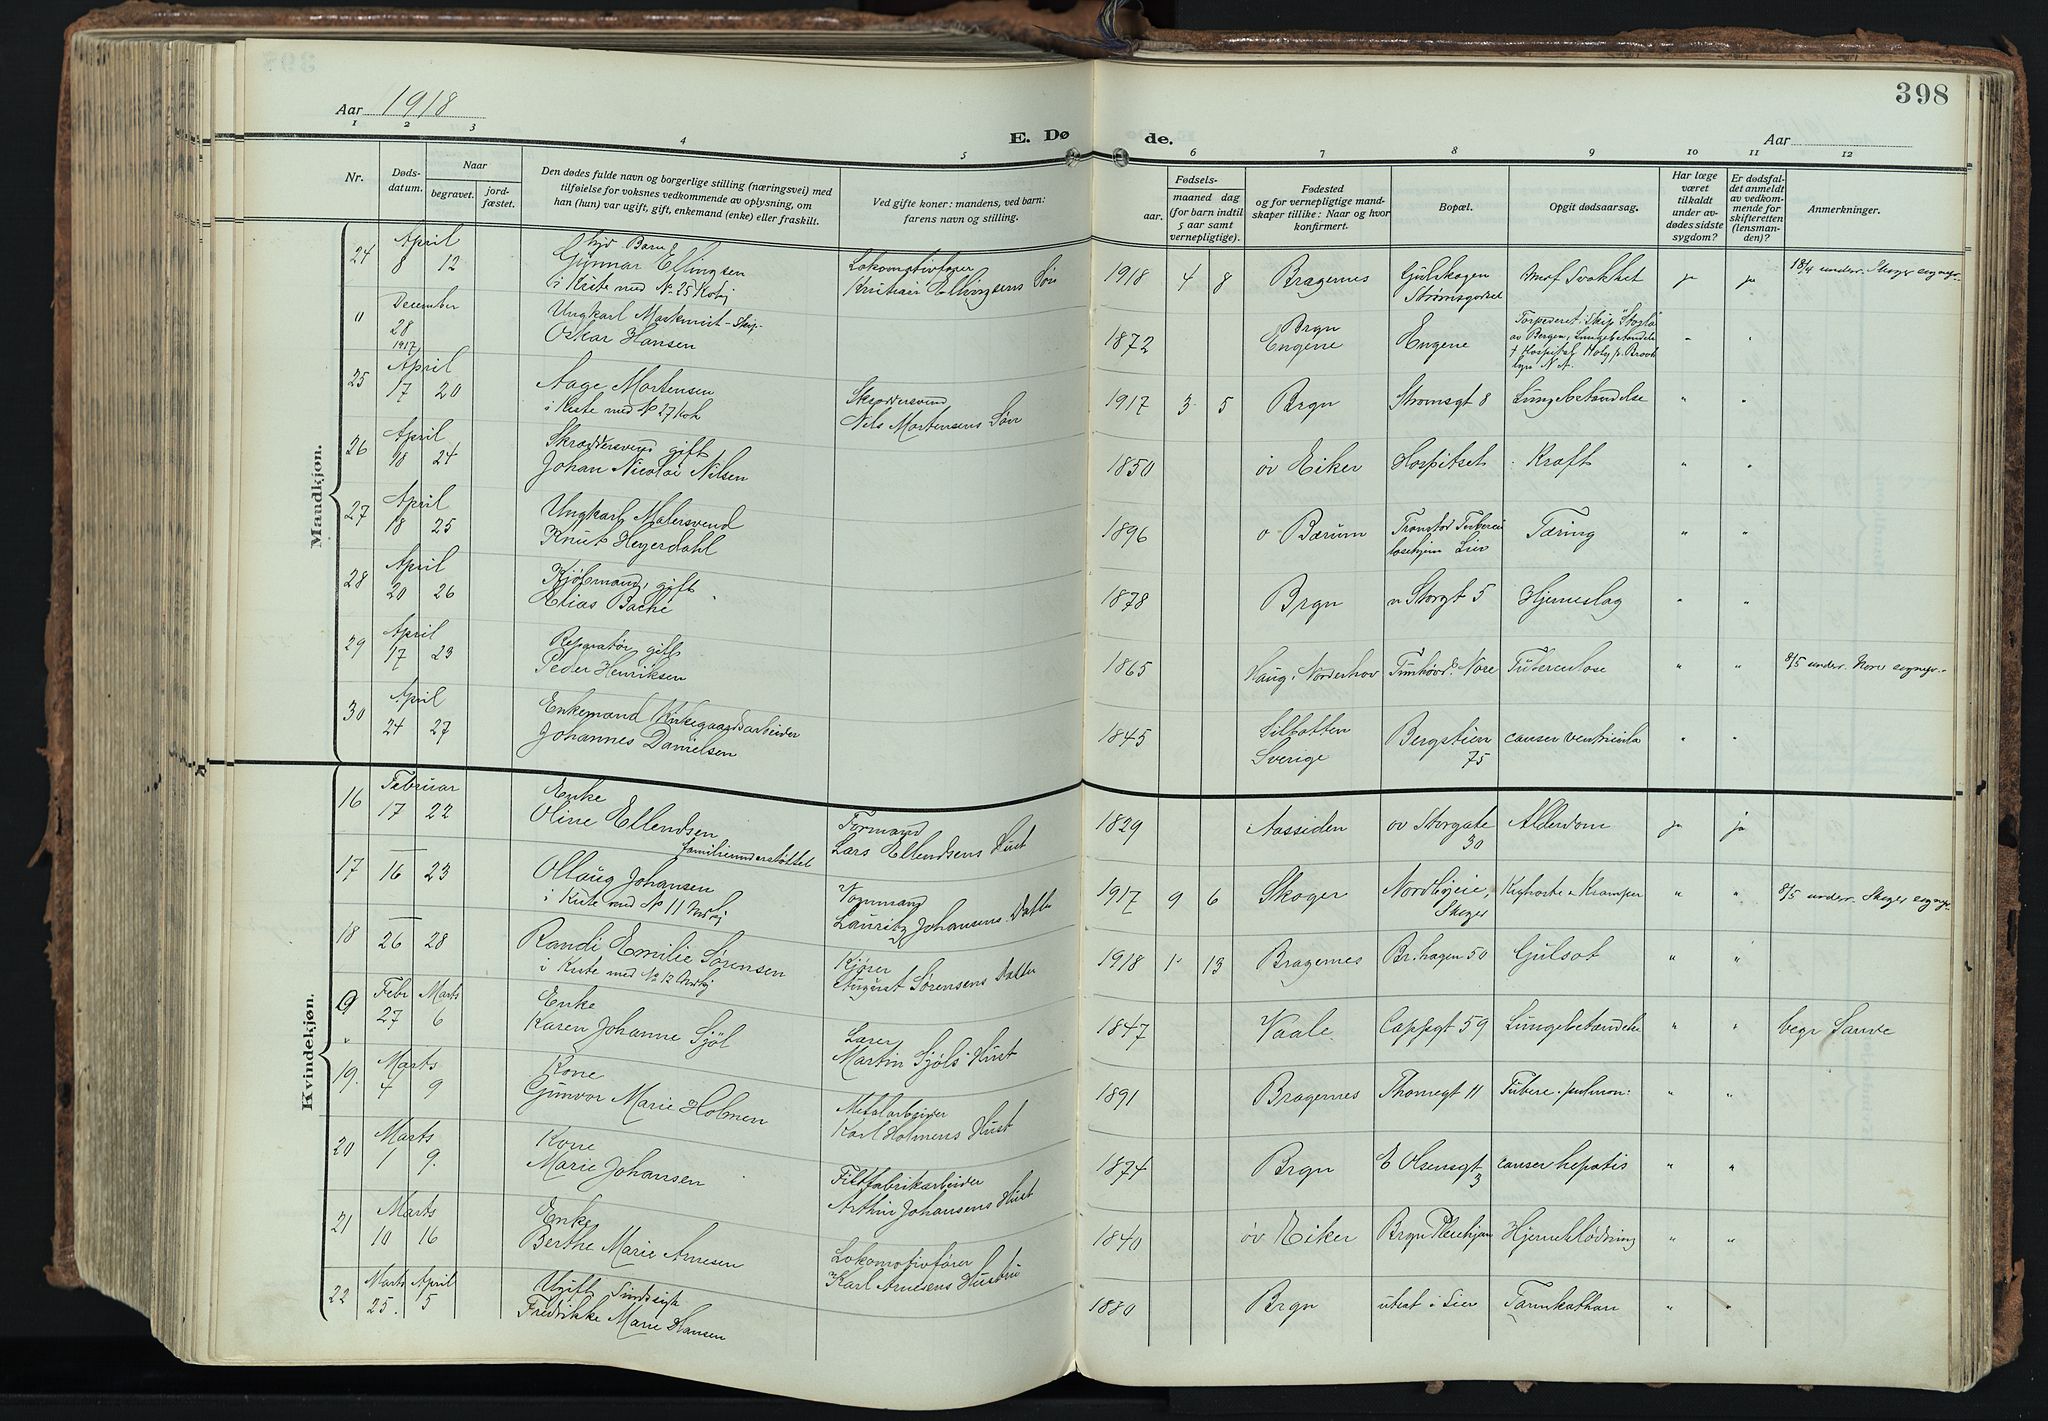 398
Aar 1918
E. Dø
de.
Aar
1 2 3 4 5 6 7 8 9 10 11 12
Nr.
Døds-
datum.
Naar
begravet.
jord-
fæstet.
Den dødes fulde navn og borgerlige stilling (næringsvei) med
tilføielse for voksnes vedkommende av oplysning, om
han (hun) var ugift, gift, enkemand (enke) eller fraskilt.
Ved gifte koner: mandens, ved barn:
farens navn og stilling.
Fødsels-
aar.
maaned dag
(for barn indtil
5 aar samt
vernepligtige).
Fødested
og for vernepligtige mand-
skaper tillike: Naar og hvor
konfirmert.
Bopæl.
Opgit dødsaarsag.
Har læge
været
tilkaldt
under av-
dødes sidste
sygdom?
Er dødsfal-
det anmeldt
av vedkom-
mende for
skifteretten
(lensman-
den)?
Anmerkninger.
Mandkjøn.
24 April 8 12
Barn
Gunnar Ellingsen
i Kiste med No 25
Lokomotivfører
Kristian Ellingsens Søn
1918 4 8 Bragernes Gulskogen
Strømsgodset
Medf Svakhet ja ja 18/4 underr. Skoger sognepr.
0 December 28 1917
Ungkarl
Oskar Hansen
1872 Brgn
Engene Engene
Torpederet i Skip
av Bergen, Lungebetændelse
Hospital Holy
lyn N.A.
" "
25 April 17 20
Aage Mortensen
i Kiste med No 27
Nels Mortensens Søn
1917 3 5 Brgn Strømsgt 8 Lungebetændelse " "
26 April 18 24
Skræddersvend gift
Johan Nicolai Nilsen
1850 øv Eiker Hospitset Kræft " "
27 April 18 25
Ungkarl Malersvend
Knut Heyerdahl
1896 Bærum
Tæring " "
28 April 20 26
Kjøbmand, gift
Elias Bache
1878 Brgn n Storgt 5 Hjerneslag " "
29 April 17 23
Reparatør, gift
Peder Henriksen
1865 Haug, Norderhov Tunhøvd Nore Tuberculose " " 8/5 underr. Nore sognepr.
30 April 24 27
Enkemand Kirkegaardsarbeider
Johannes Danielsen
1845
Sverige
Bergstien
75
canser ventricula " "
Kvindekjøn.
16 Februar 17 22
Enke
Oline Ellendsen
familieunderstøttet
Formand
Lars Ellendsens Hust
1829 Aassiden ov Storgate
30
Alderdom ja ja
17 — 16 23
Ollaug Johansen
i Kiste med No 11
Vognmand
Lauritz Johansens Datter
1917 9 6 Skoger Nordbyeie,
Skoger
Kighoste & Kramper " " 8/5 underr. Skoger sognepr.
18 — 26 28
Randi Emilie Sørensen
i Kiste med No 12
Kjører
August Sørensens Datter
1918 1 13 Bragernes Br. hagen 50 Gulsot " "
0 Febr 27 Marts 6
Enke
Karen Johanne Sjøl
Lærer
Martin Sjøls Hust
1847 Vaale Cappsgt 59 Lungebetændelse " " begr Sande
19. Marts 4 9
Kone
Gunvor Marie Holmen
Metalarbeider
Karl Holmens Hust
1891 Bragernes Thomegt 11 Tuberc. pulmon: " "
20 Marts 1 9.
Kone
Marie Johansen
Filtfabrikarbeider
Arthur Johansens Hust
1874 Brgn E Olsensgt
3
canser hepatis " "
21 Marts 10 16
Enke
Berthe Marie Arnesen
Lokomotivfører
Karl Arnesens Hustru
1840 øv Eiker Brgn Pleiehjem Hjerneblødning " "
22 Marts 25. April 5
Ugift Sindssyk
Fredrikke Marie Hansen
1880 Brgn utsat i Lier Tarmkathar " "